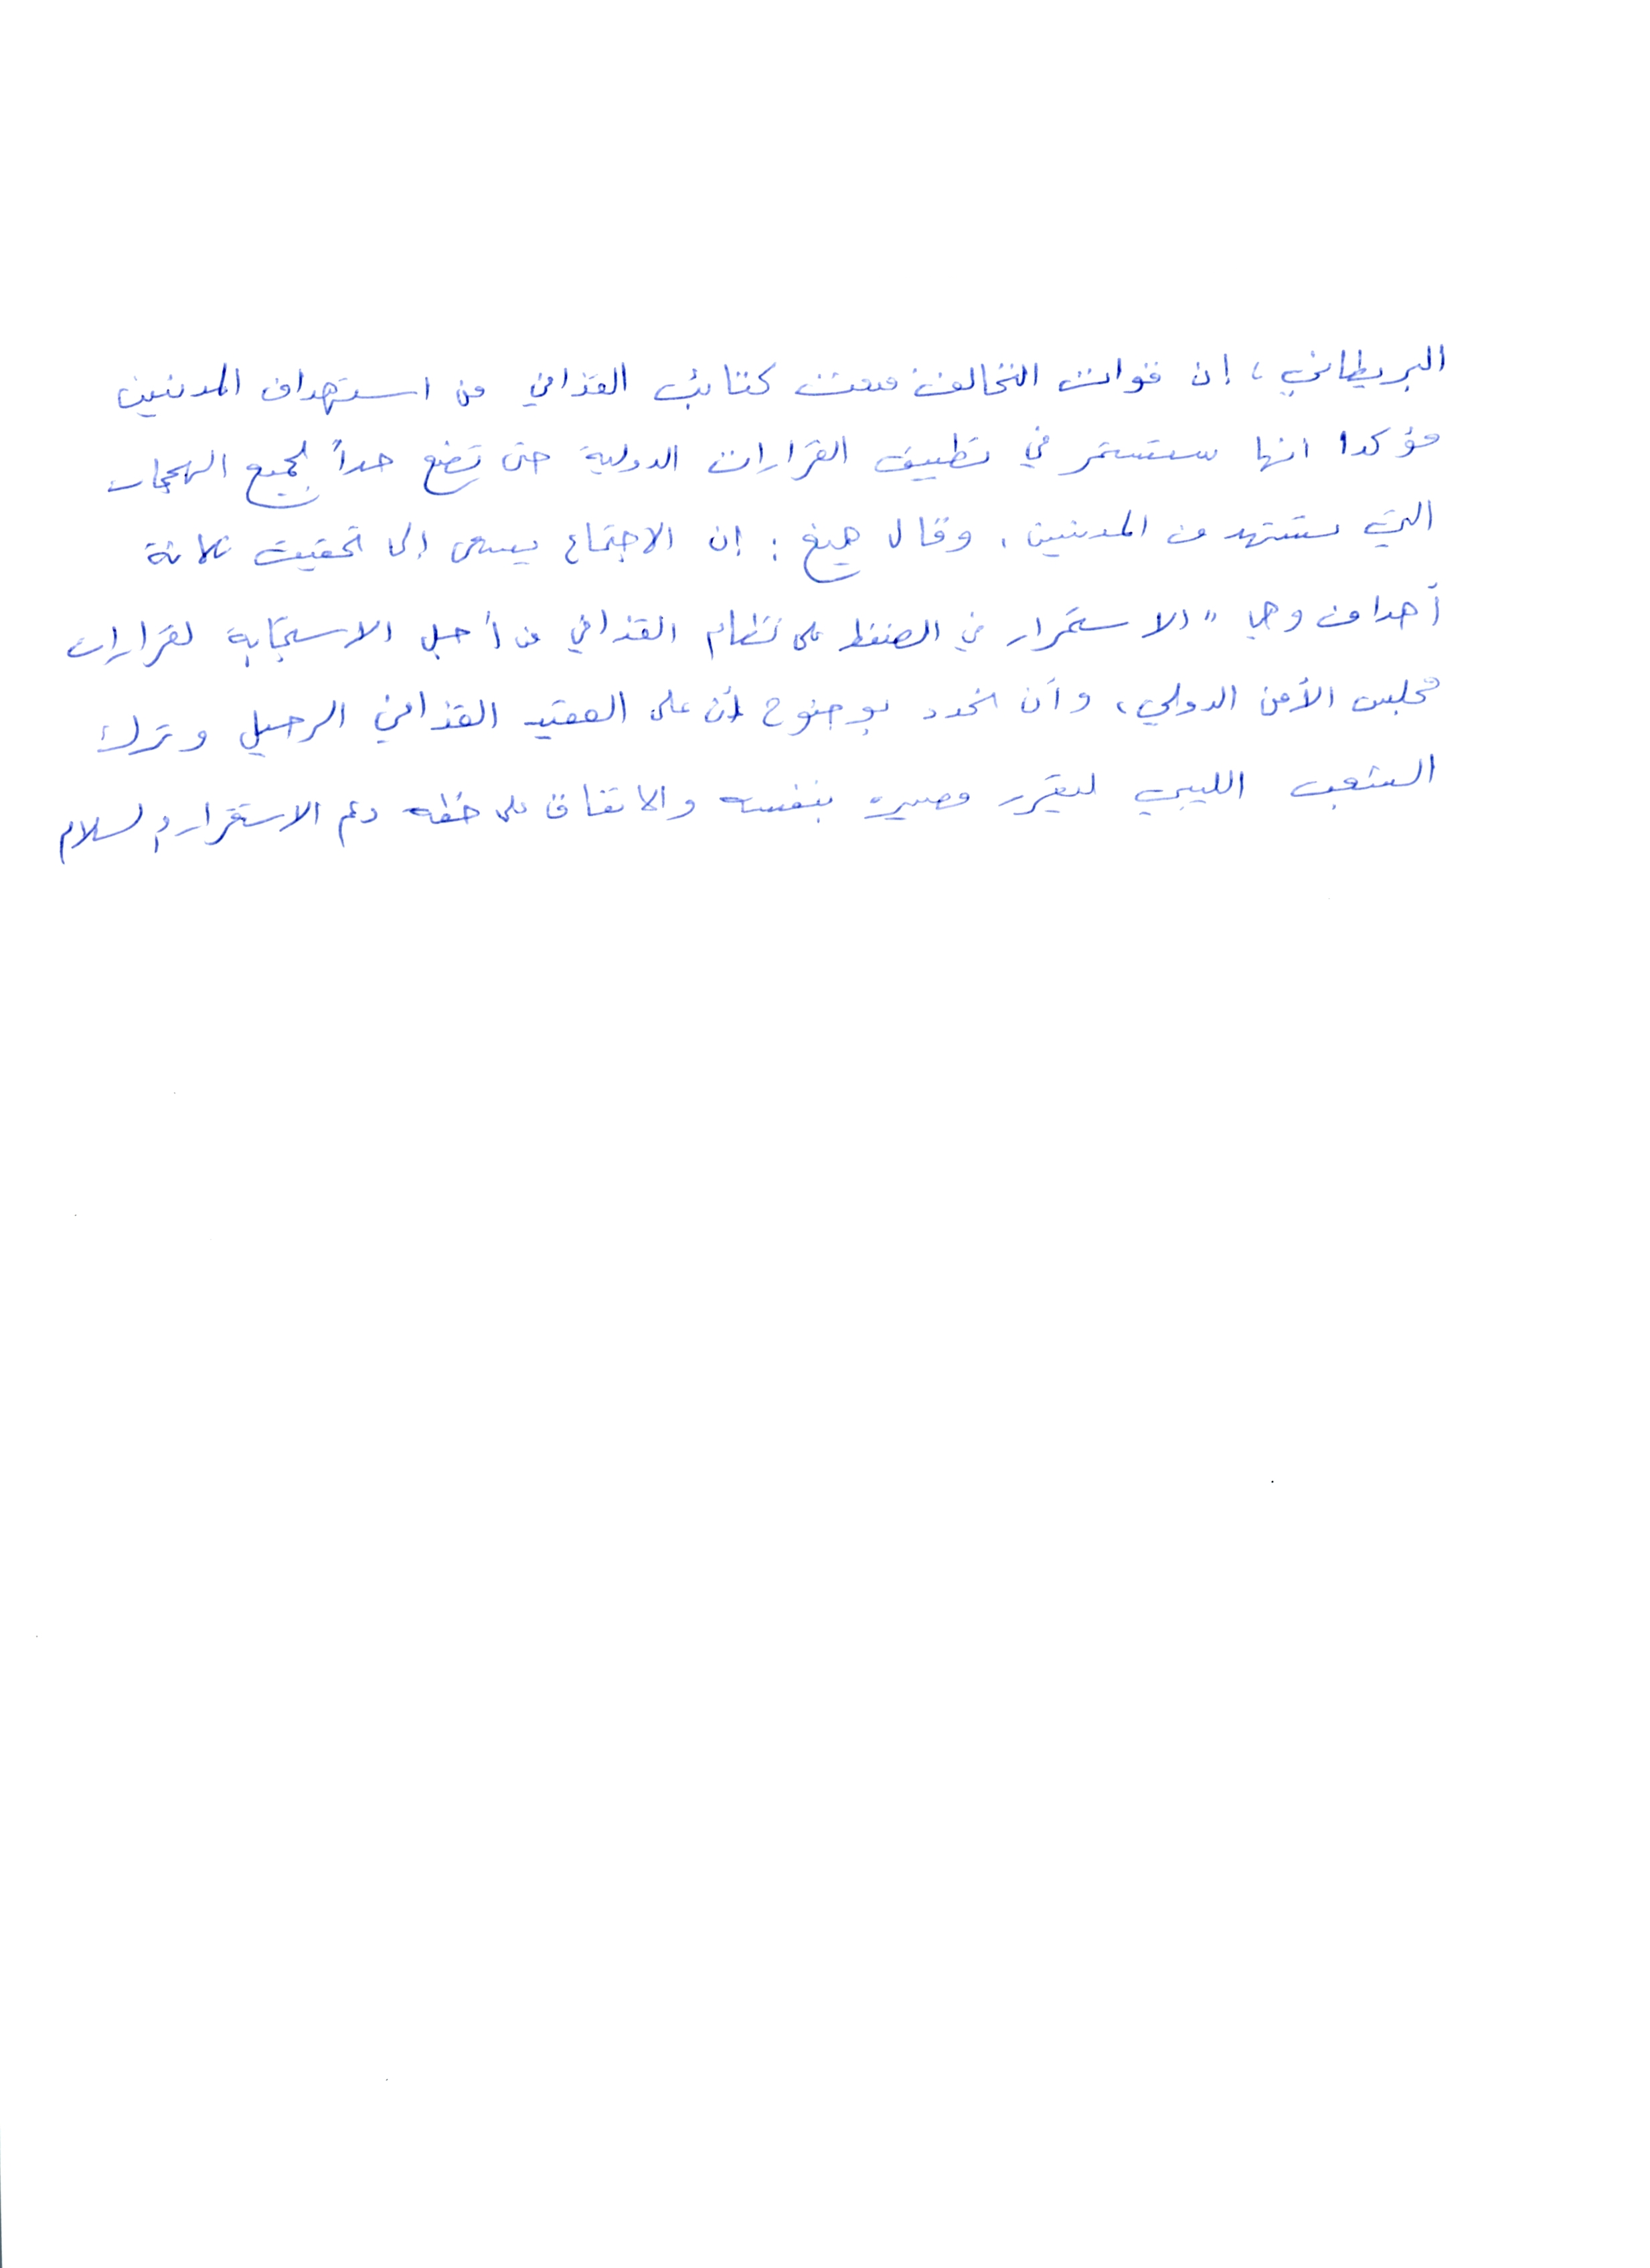 البريطاني، إن قوات التحالف منعت كتائب القذافي من استهداف المدنيين
مؤكدا انها ستستمر في تطبيق القرارات الدولية حتى تضع حداً لجميع الهجمات
التي تستهدف المدنيين. وقال هيغ: إن الاجتماع يسعى إلى تحقيق ثلاثة
أهداف وهي "الاستمرار في الضغط على نظام القذافي من أجل الاستجابة لقرارات
مجلس الأمن الدولي، وأن نحدد بوضوح أن على العقيد القذافي الرحيل وترك
الشعب الليبي ليقرر مصيره بنفسه والاتفاق على خطه دعم الاستقرار والسلام